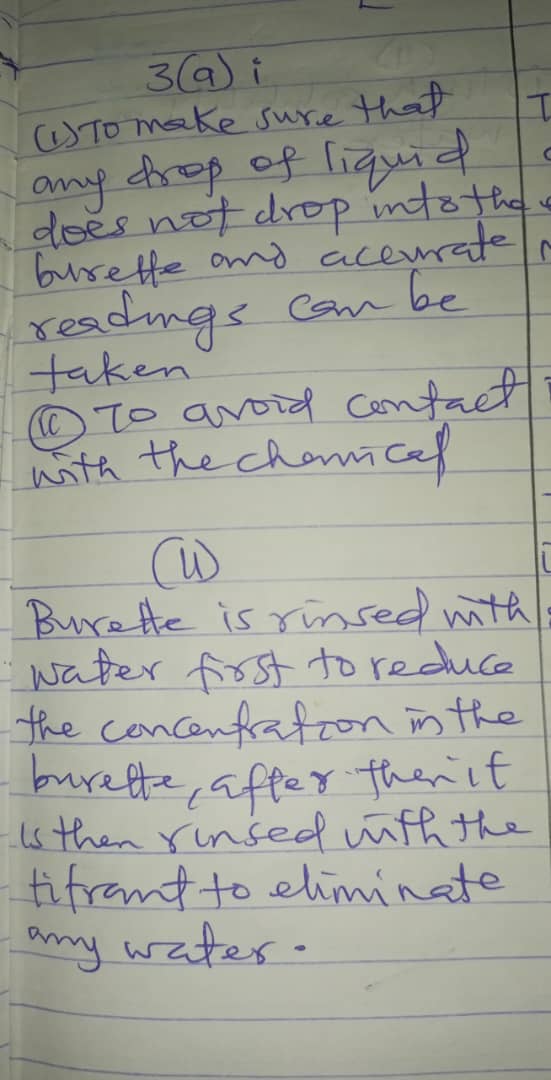 3(a) i
(i) To make sure that
any drop of liquid
does not drop into the
burette and accurate
readings can be
taken
(ii) To avoid contact
with the chemical
(ii)
Burette is rinsed with
water first to reduce
the concentration in the
burette, after then it
is then rinsed with the
titrant to eliminate
any water.